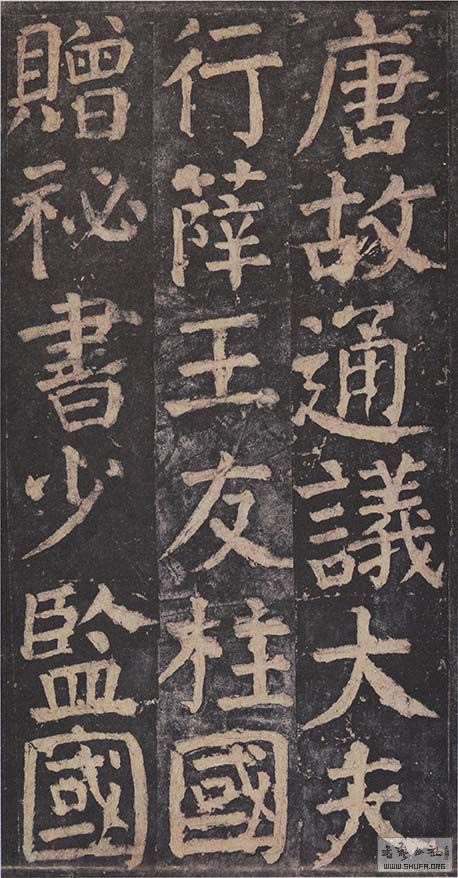 唐故通議大夫
行薛王友柱國
贈祕書少監國
WWW.SHUFA.ORG